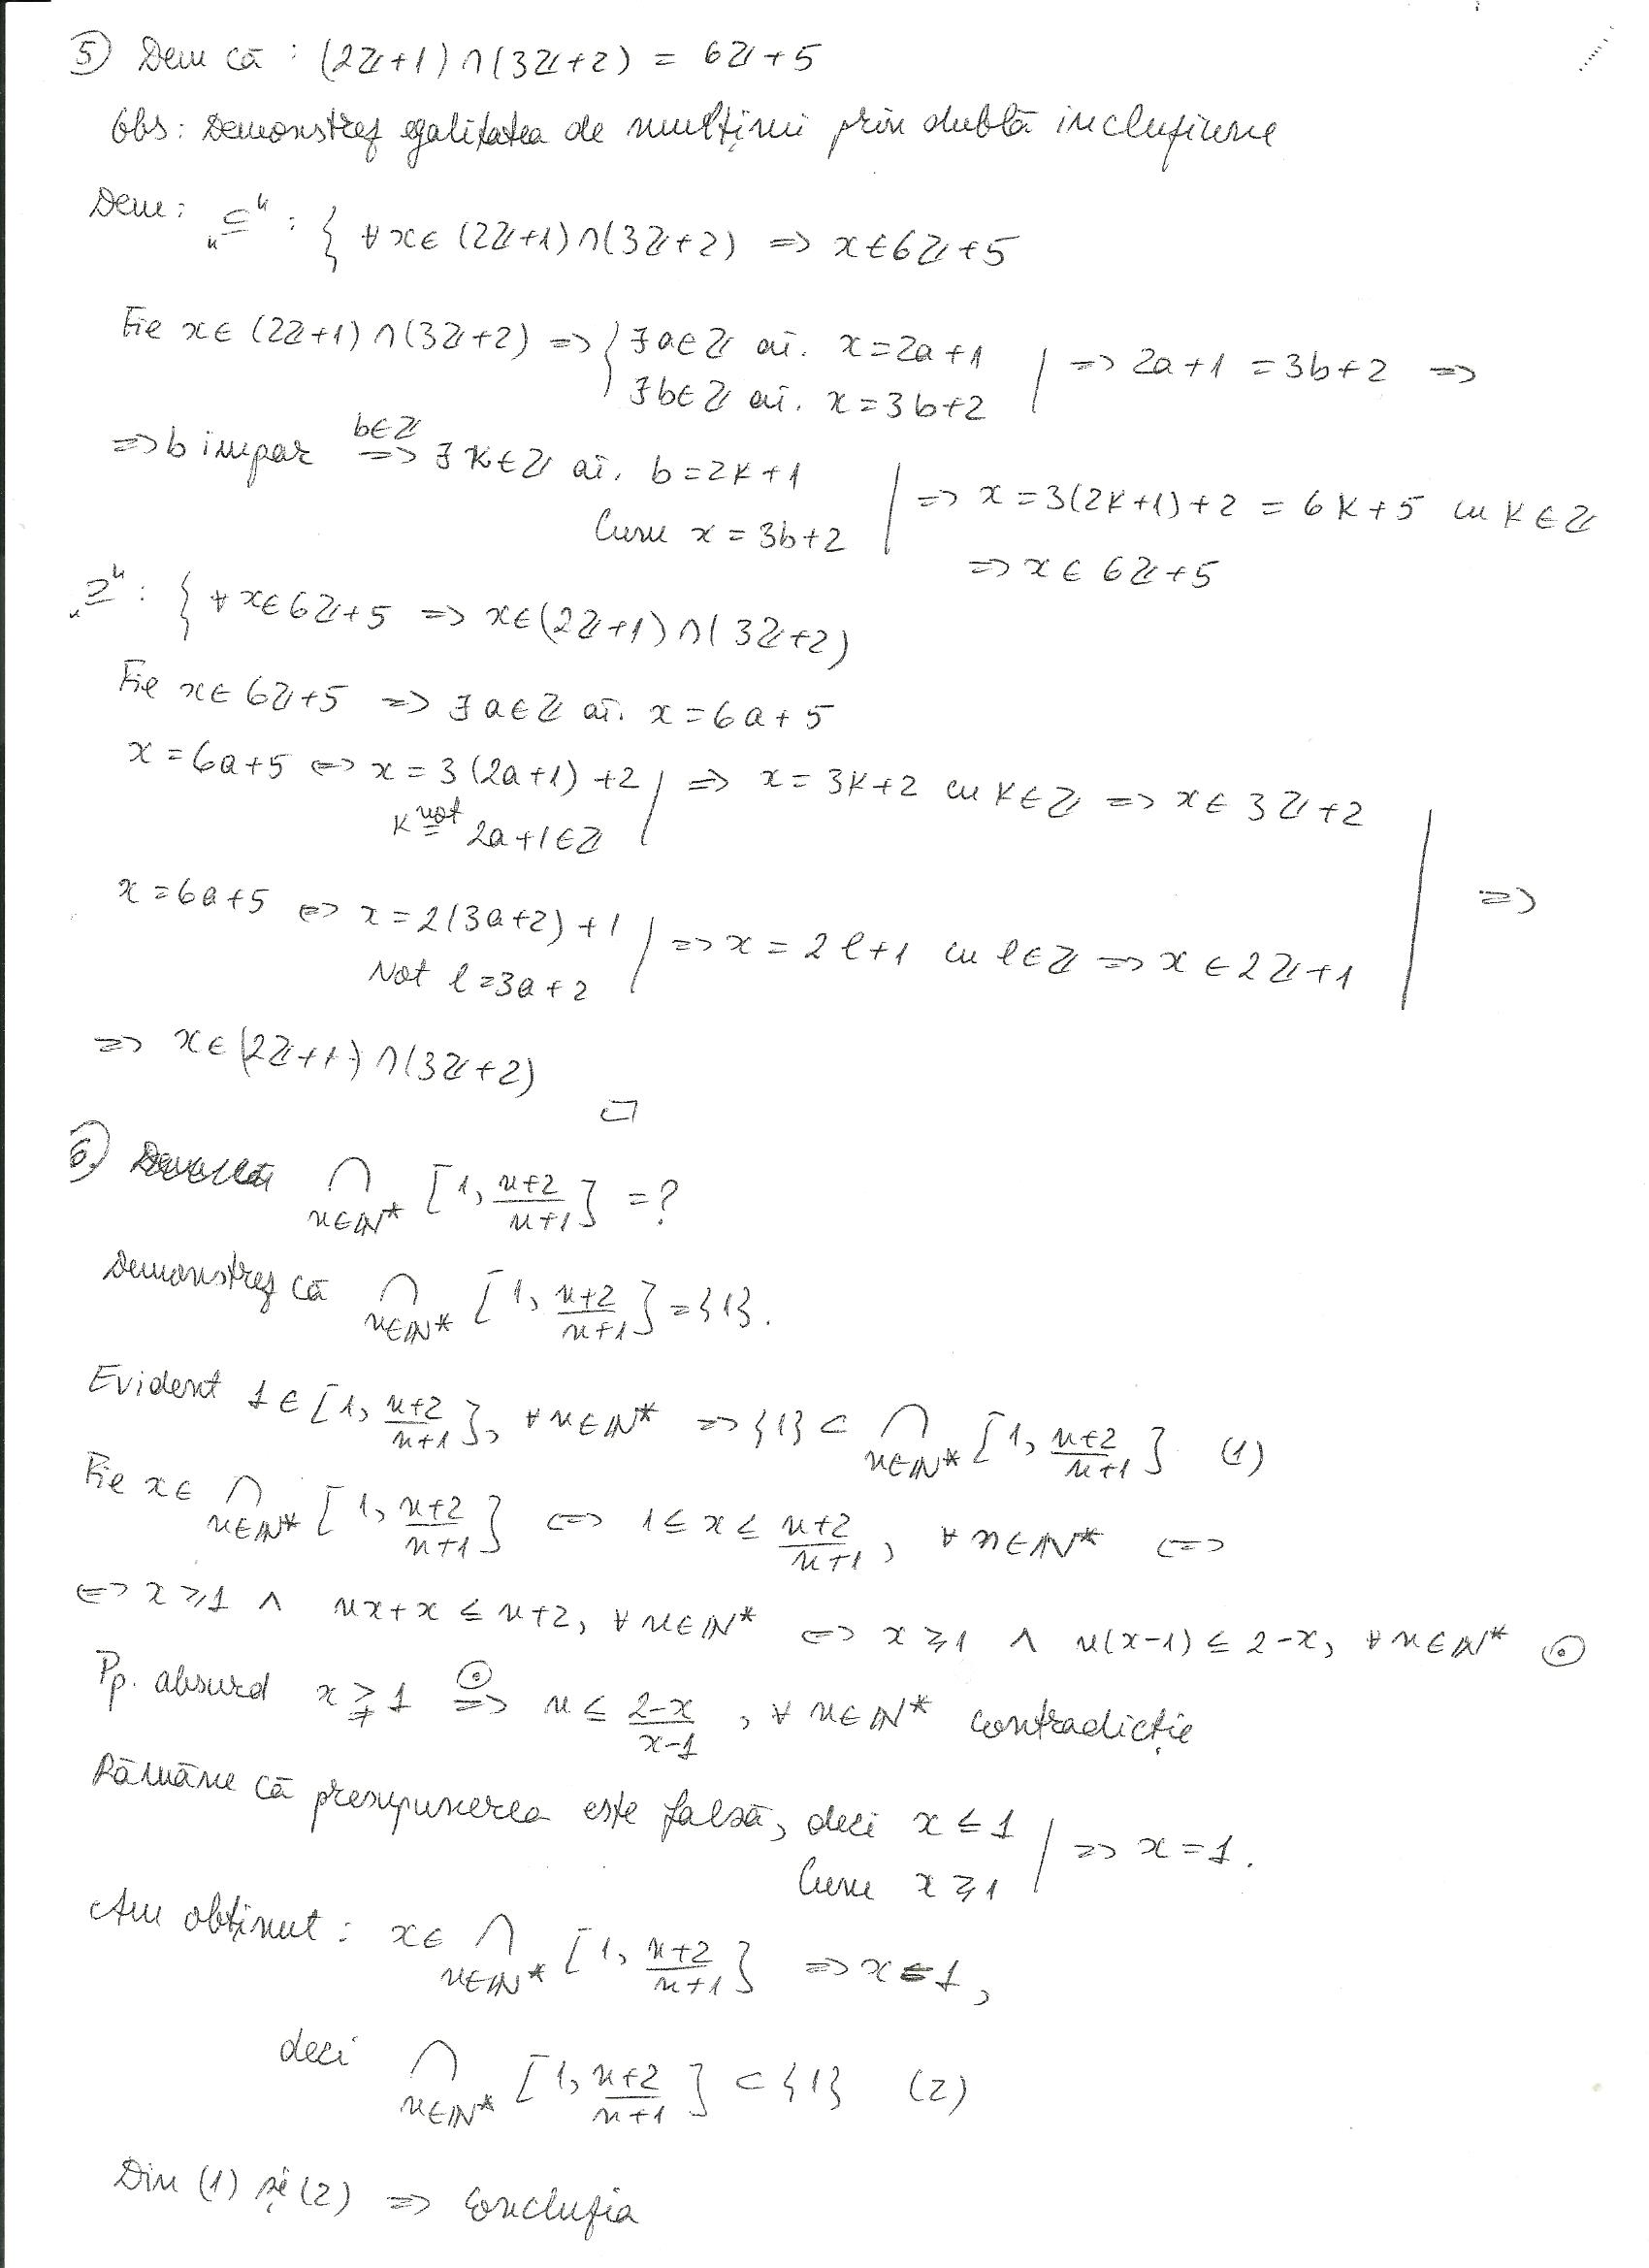 5) Dem că : (2ℤ+1)∩(3ℤ+2) = 6ℤ+5
Obs: Demonstrez egalitatea de mulțimi prin dublă incluziune
Dem: „⊆" : { ∀x∈(2ℤ+1)∩(3ℤ+2) => x∈6ℤ+5
Fie x∈(2ℤ+1)∩(3ℤ+2) => { ∃a∈ℤ aî. x=2a+1 | => 2a+1 = 3b+2 =>
∃b∈ℤ aî. x=3b+2
=> b impar =>(b∈ℤ) ∃k∈ℤ aî. b=2k+1 | => x=3(2k+1)+2 = 6k+5 cu k∈ℤ
Cum x=3b+2 => x∈6ℤ+5
„⊇" : { ∀x∈6ℤ+5 => x∈(2ℤ+1)∩(3ℤ+2)
Fie x∈6ℤ+5 => ∃a∈ℤ aî. x=6a+5
x=6a+5 <=> x=3(2a+1)+2 | => x=3k+2 cu k∈ℤ => x∈3ℤ+2 |
k not= 2a+1∈ℤ
x=6a+5 <=> x=2(3a+2)+1 | => x=2l+1 cu l∈ℤ => x∈2ℤ+1 | =>
Not l=3a+2
=> x∈(2ℤ+1)∩(3ℤ+2)
□
6) ∩_{n∈ℕ*} [1, (n+2)/(n+1)] = ?
Demonstrez că ∩_{n∈ℕ*} [1, (n+2)/(n+1)] = {1}.
Evident 1∈[1, (n+2)/(n+1)], ∀n∈ℕ* => {1} ⊂ ∩_{n∈ℕ*} [1, (n+2)/(n+1)] (1)
Fie x∈ ∩_{n∈ℕ*} [1, (n+2)/(n+1)] <=> 1≤x≤(n+2)/(n+1), ∀n∈ℕ* <=>
<=> x≥1 ∧ nx+x≤n+2, ∀n∈ℕ* <=> x≥1 ∧ n(x-1)≤2-x, ∀n∈ℕ* ⊙
Pp. absurd x≩1 =>(⊙) n≤(2-x)/(x-1), ∀n∈ℕ* contradicție
Rămâne că presupunerea este falsă, deci x≤1 | => x=1.
Cum x≥1
Am obținut: x∈ ∩_{n∈ℕ*} [1, (n+2)/(n+1)] => x=1,
deci ∩_{n∈ℕ*} [1, (n+2)/(n+1)] ⊂ {1} (2)
Din (1) și (2) => Concluzia